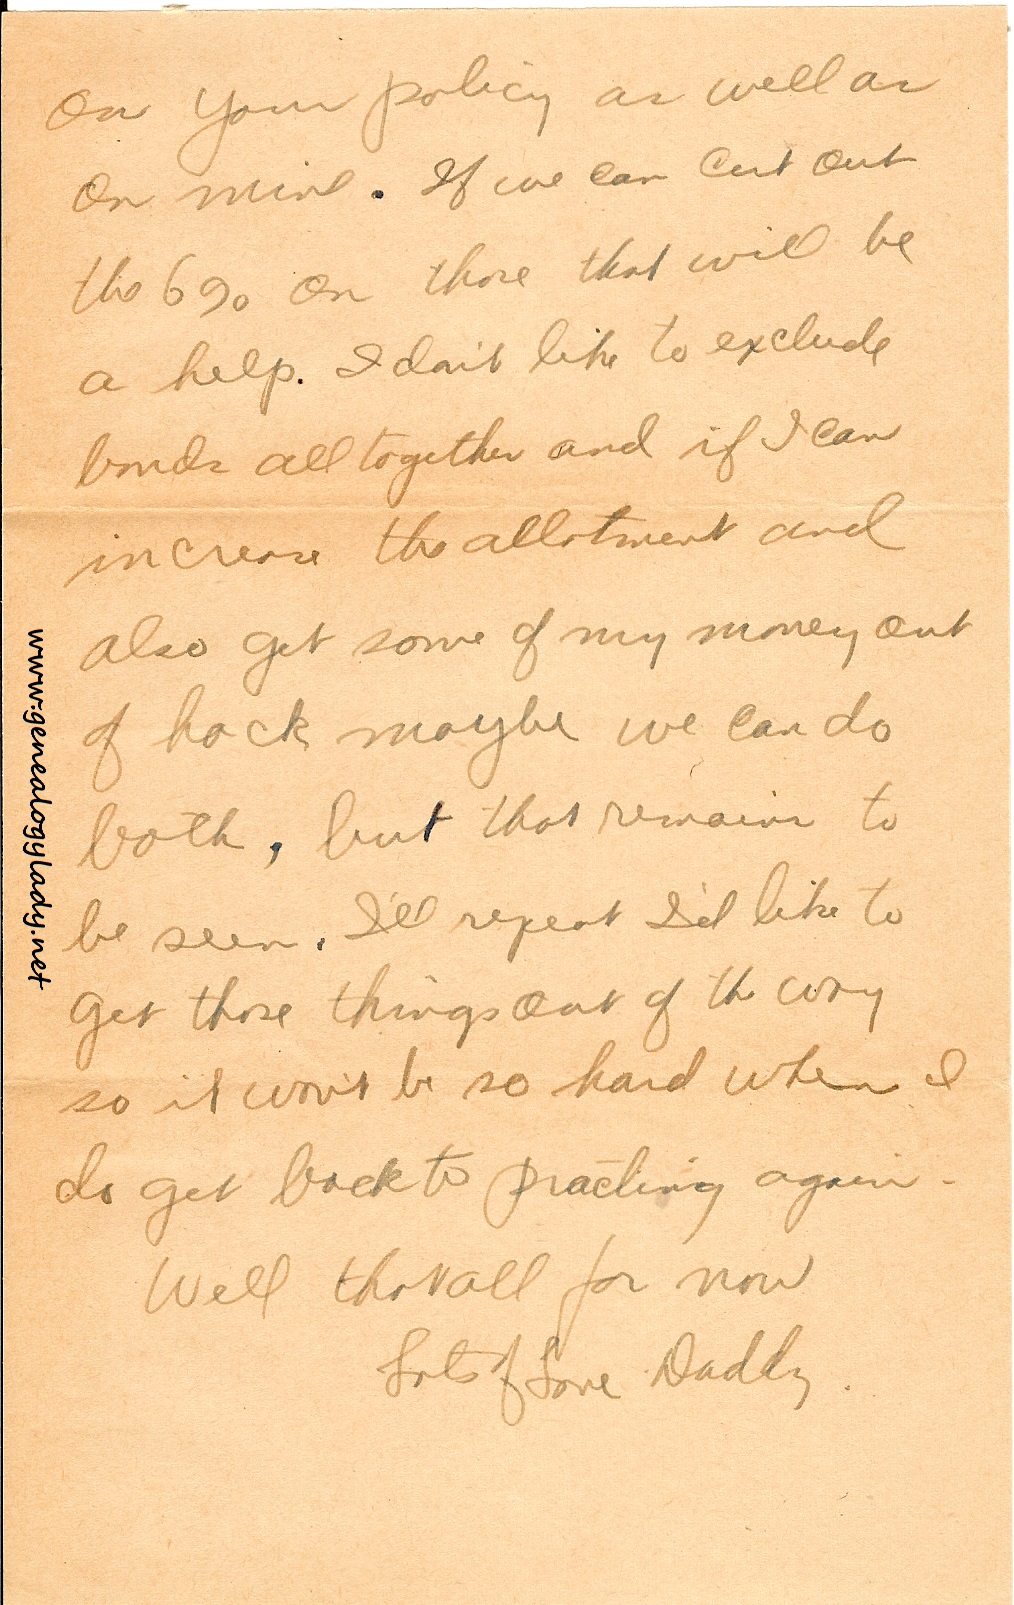 on your policy as well as
on mine. If we can cut out
the 6% on those that will be
a help. I don't like to exclude
bonds all together and if I can
increase the allotment and
also get some of my money out
of hock maybe we can do
both, but that remains to
be seen. I'll repeat I'd like to
get those things out of the way
so it won't be so hard when I
do get back to practicing again.
Well that all for now
Lots of Love Daddy.
www.genealogylady.net